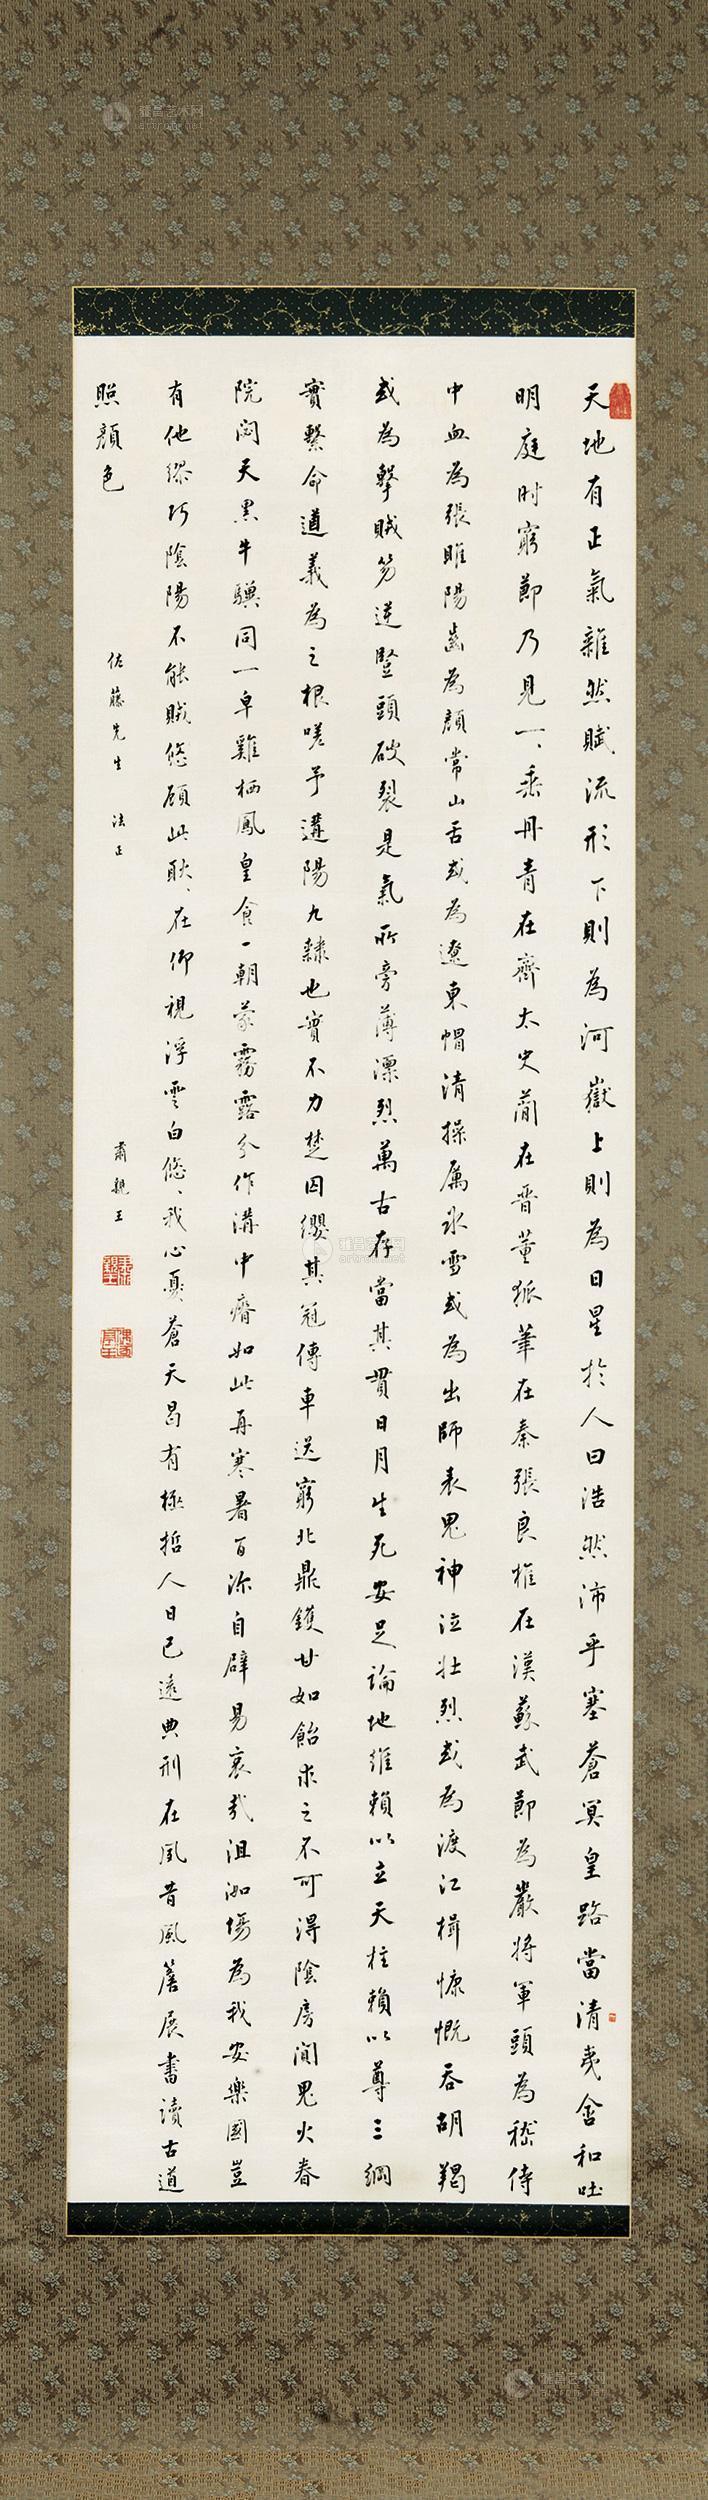 天地有正氣雜然賦流形下則為河嶽上則為日星於人曰浩然沛乎塞蒼冥皇路當清夷含和吐
明庭时窮節乃見一、垂丹青在齊太史簡在晉董狐筆在秦張良椎在漢蘇武節為嚴將軍頭為嵇侍
中血為張睢陽齒為顏常山舌或為遼東帽清操厲冰雪或為出師表鬼神泣壯烈或為渡江楫慷慨吞胡羯
或為擊賊笏逆豎頭破裂是氣所旁薄凛烈萬古存當其貫日月生死安足論地維賴以立天柱賴以尊三綱
實繫命道義為之根嗟予遘陽九隸也實不力楚囚纓其冠傳車送窮北鼎鑊甘如飴求之不可得陰房闃鬼火春
院閟天黑牛驥同一皁雞栖鳳皇食一朝蒙霧露分作溝中瘠如此再寒暑百沴自辟易哀哉沮洳場為我安樂國豈
有他繆巧陰陽不能賊悠顧此耿、在仰視浮雲白悠、我心憂蒼天曷有極哲人日已遠典刑在夙昔風簷展書讀古道
照顏色
佐藤先生 法正
肅親王
雅昌艺术网
artron.net